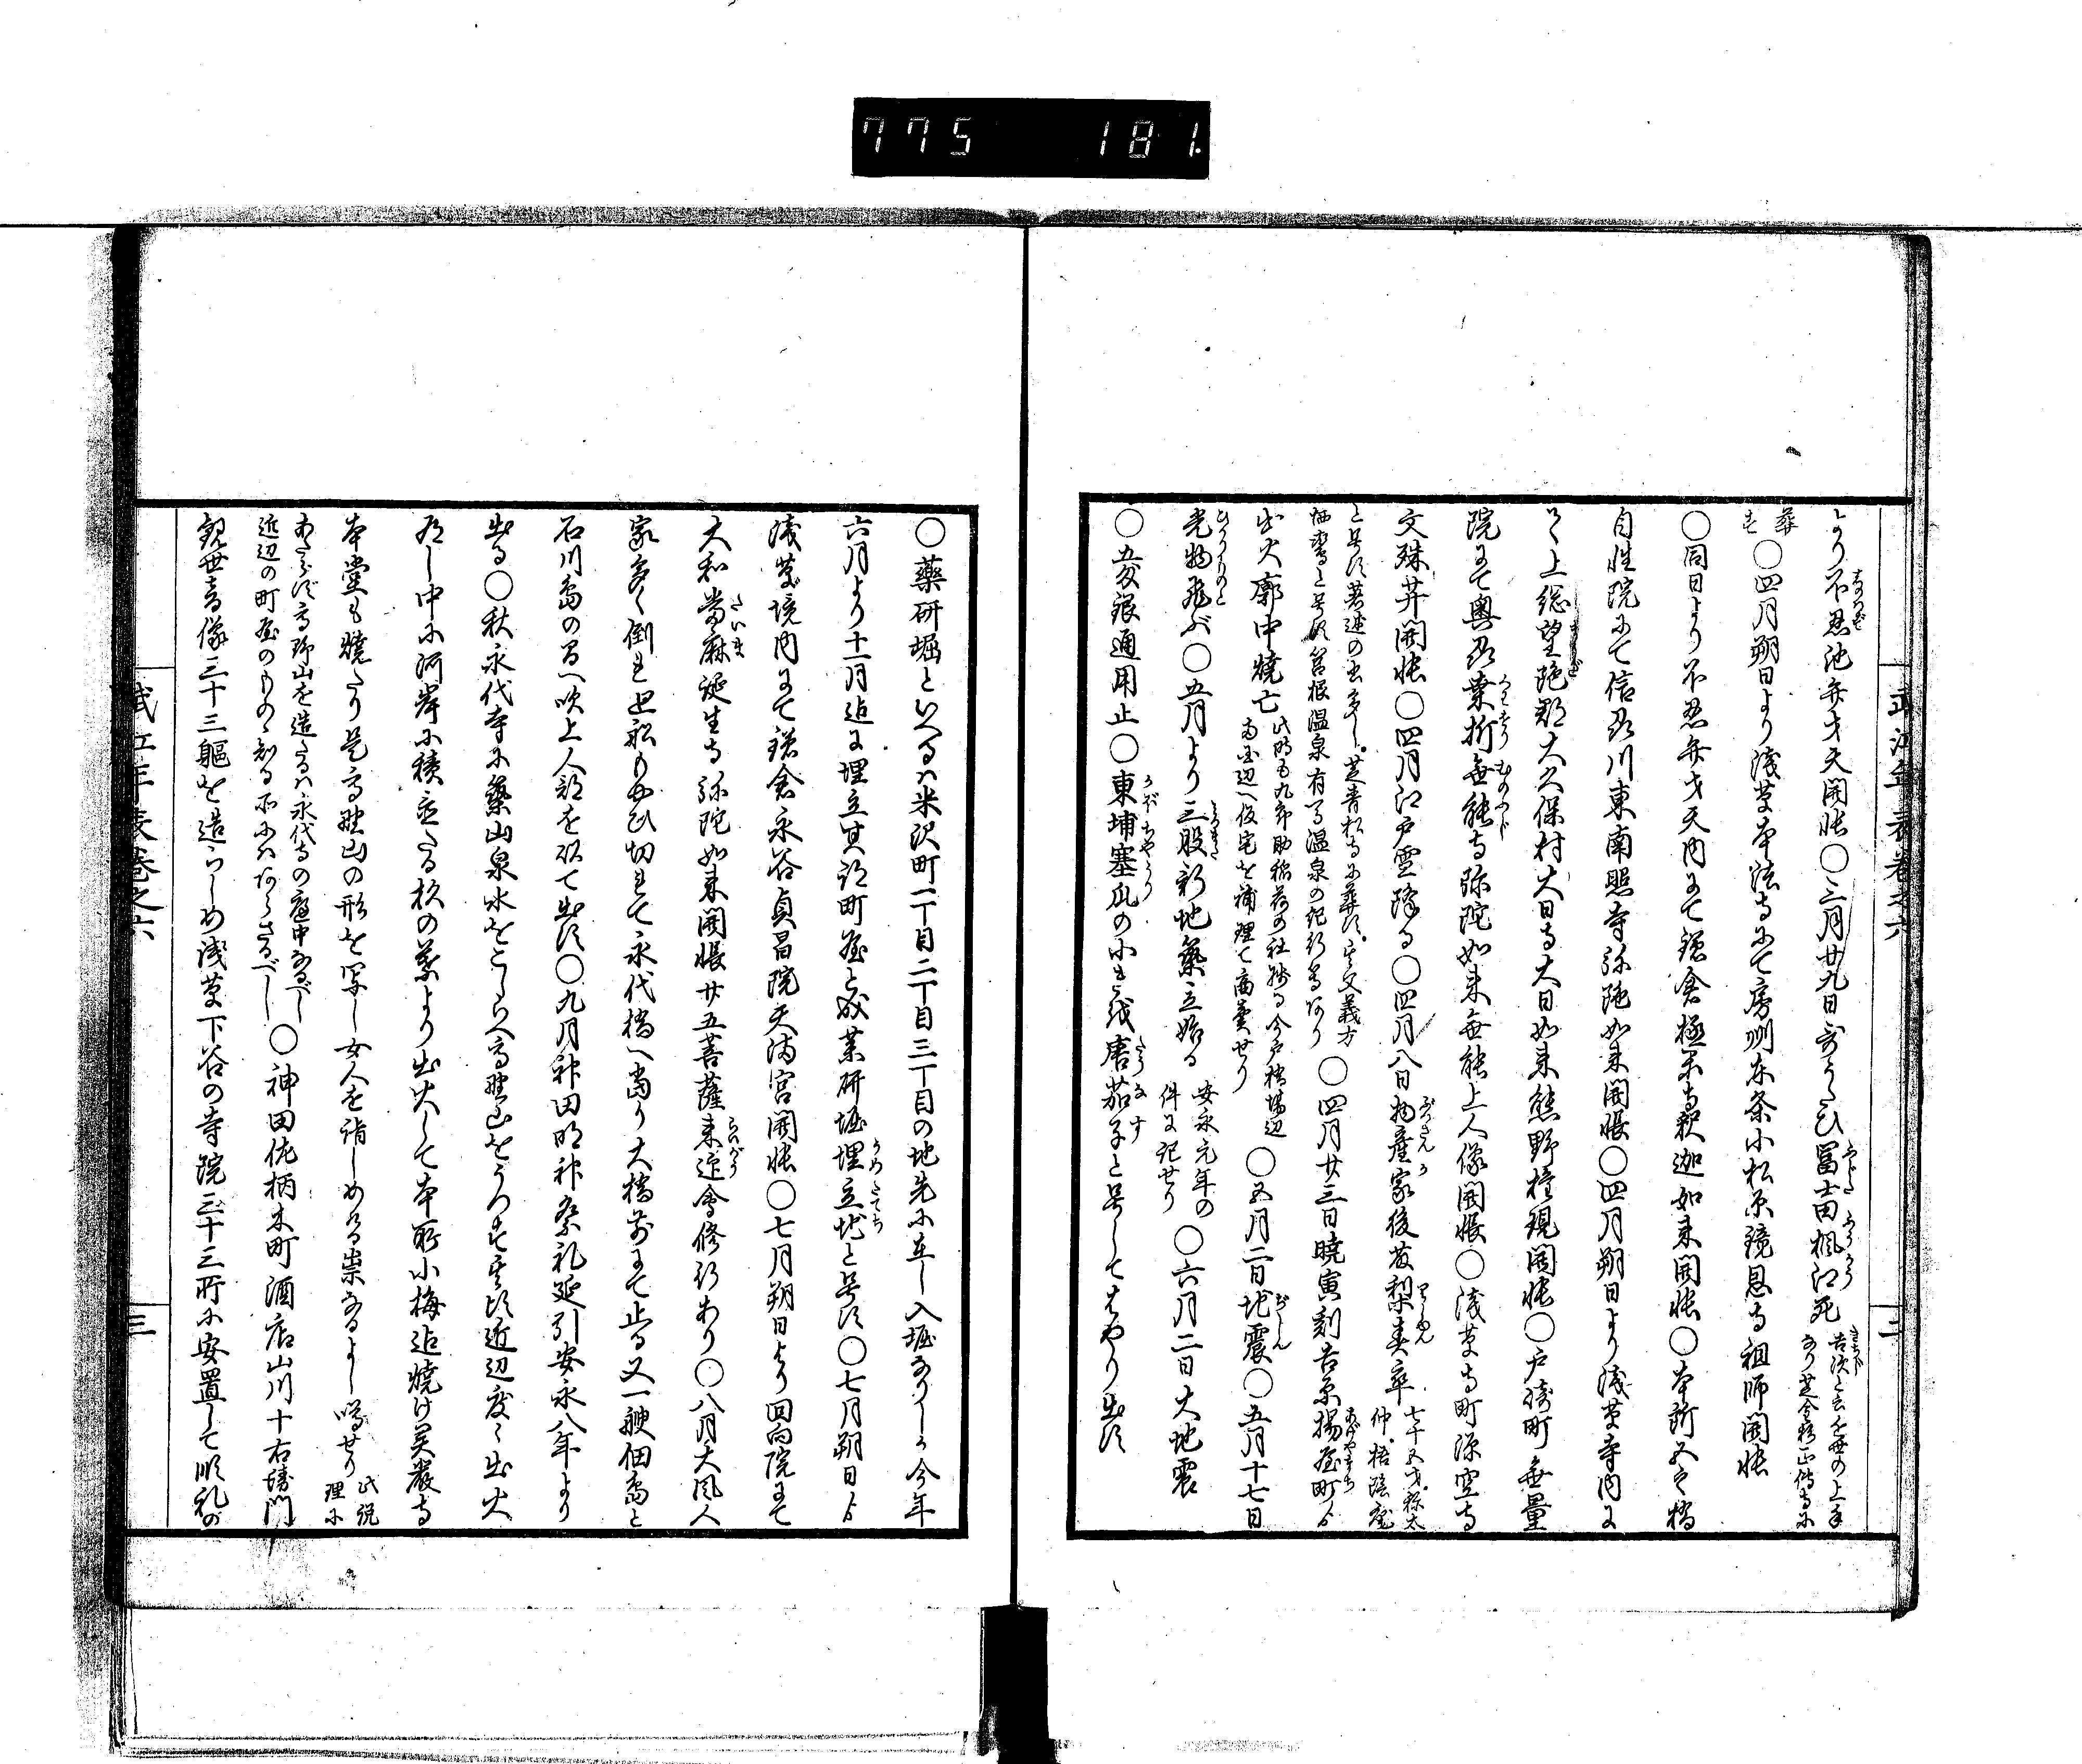 775 181
武江年表巻之六
二
より不忍池弁才天開帳〇三月廿九日哥うたひ冨士田楓江死吉次と云を世の上手なり芝金杉正傳寺に
葬す〇四月朔日より浅草本法寺にて房州東条小松原鏡忍寺祖師開帳
〇同日より不忍弁才天内にて鎌倉極楽寺釈迦如来開帳〇本所五之橋
自性院にて信州川東南照寺弥陀如来開帳〇四月朔日より浅草寺内に
て上総望陀郡大久保村大日寺大日如来熊野権現開帳〇戸崎町無量
院にて奥州桑折無能寺弥陀如来無能上人像開帳〇浅草寺町源空寺
文殊并開帳〇四月江戸雪降る〇四月八日物産家後藤梨春卒七十五才称太仲梧陰庵
と号す著述の書多し芝青松寺に葬す其父義方栖鸞と号す箱根温泉有馬温泉の記行等あり〇四月廿三日暁寅刻吉原揚屋町ゟ
出火廓中焼亡此時も九郎助稲荷の社残る今戸橋場辺両国辺へ仮宅を補理て商売せり〇五月二日地震〇五月十七日
光物飛ぶ〇五月より三股新地築立始る安永元年の件に記せり〇六月二日大地震
〇五匁銀通用止〇東埔塞瓜の小きを唐茄子と号してはやり出す
〇薬研堀といへるは米沢町一丁目二丁目三丁目の地先に在し入堀なりしが今年
六月より十一月迄に埋立其所町屋と成薬研堀埋立地と号す〇七月朔日ゟ
浅草境内にて鎌倉永谷貞昌院天満宮開帳〇七月朔日より回向院にて
大和當麻誕生寺弥陀如来開帳廿五菩薩来迎會修行あり〇八月大風人
家多く倒れ迫船もやひ切れて永代橋へ當り大橋前にて止る又一艘佃島と
石川島の間へ吹上人部を破て出す〇九月神田明神祭礼延引安永八年より
出る〇秋永代寺に築山泉水をこしらへ高野山をうつす其頃近辺度々出火
有し中に河岸に積立たる杉の葉より出火して本所小梅迄焼け美巌寺
本堂も焼たり是高野山の形を写し女人を詣しめける崇なるよし噂せり此説理に
あたらず高野山を造たるは永代寺の庭中なるべし近辺の町屋のものゝ知る所にはあらざるべし〇神田佐柄木町酒店山川十右衛門
観世音像三十三軀を造らしめ浅草下谷の寺院三十三所に安置して順礼の
武江年表巻之六
三